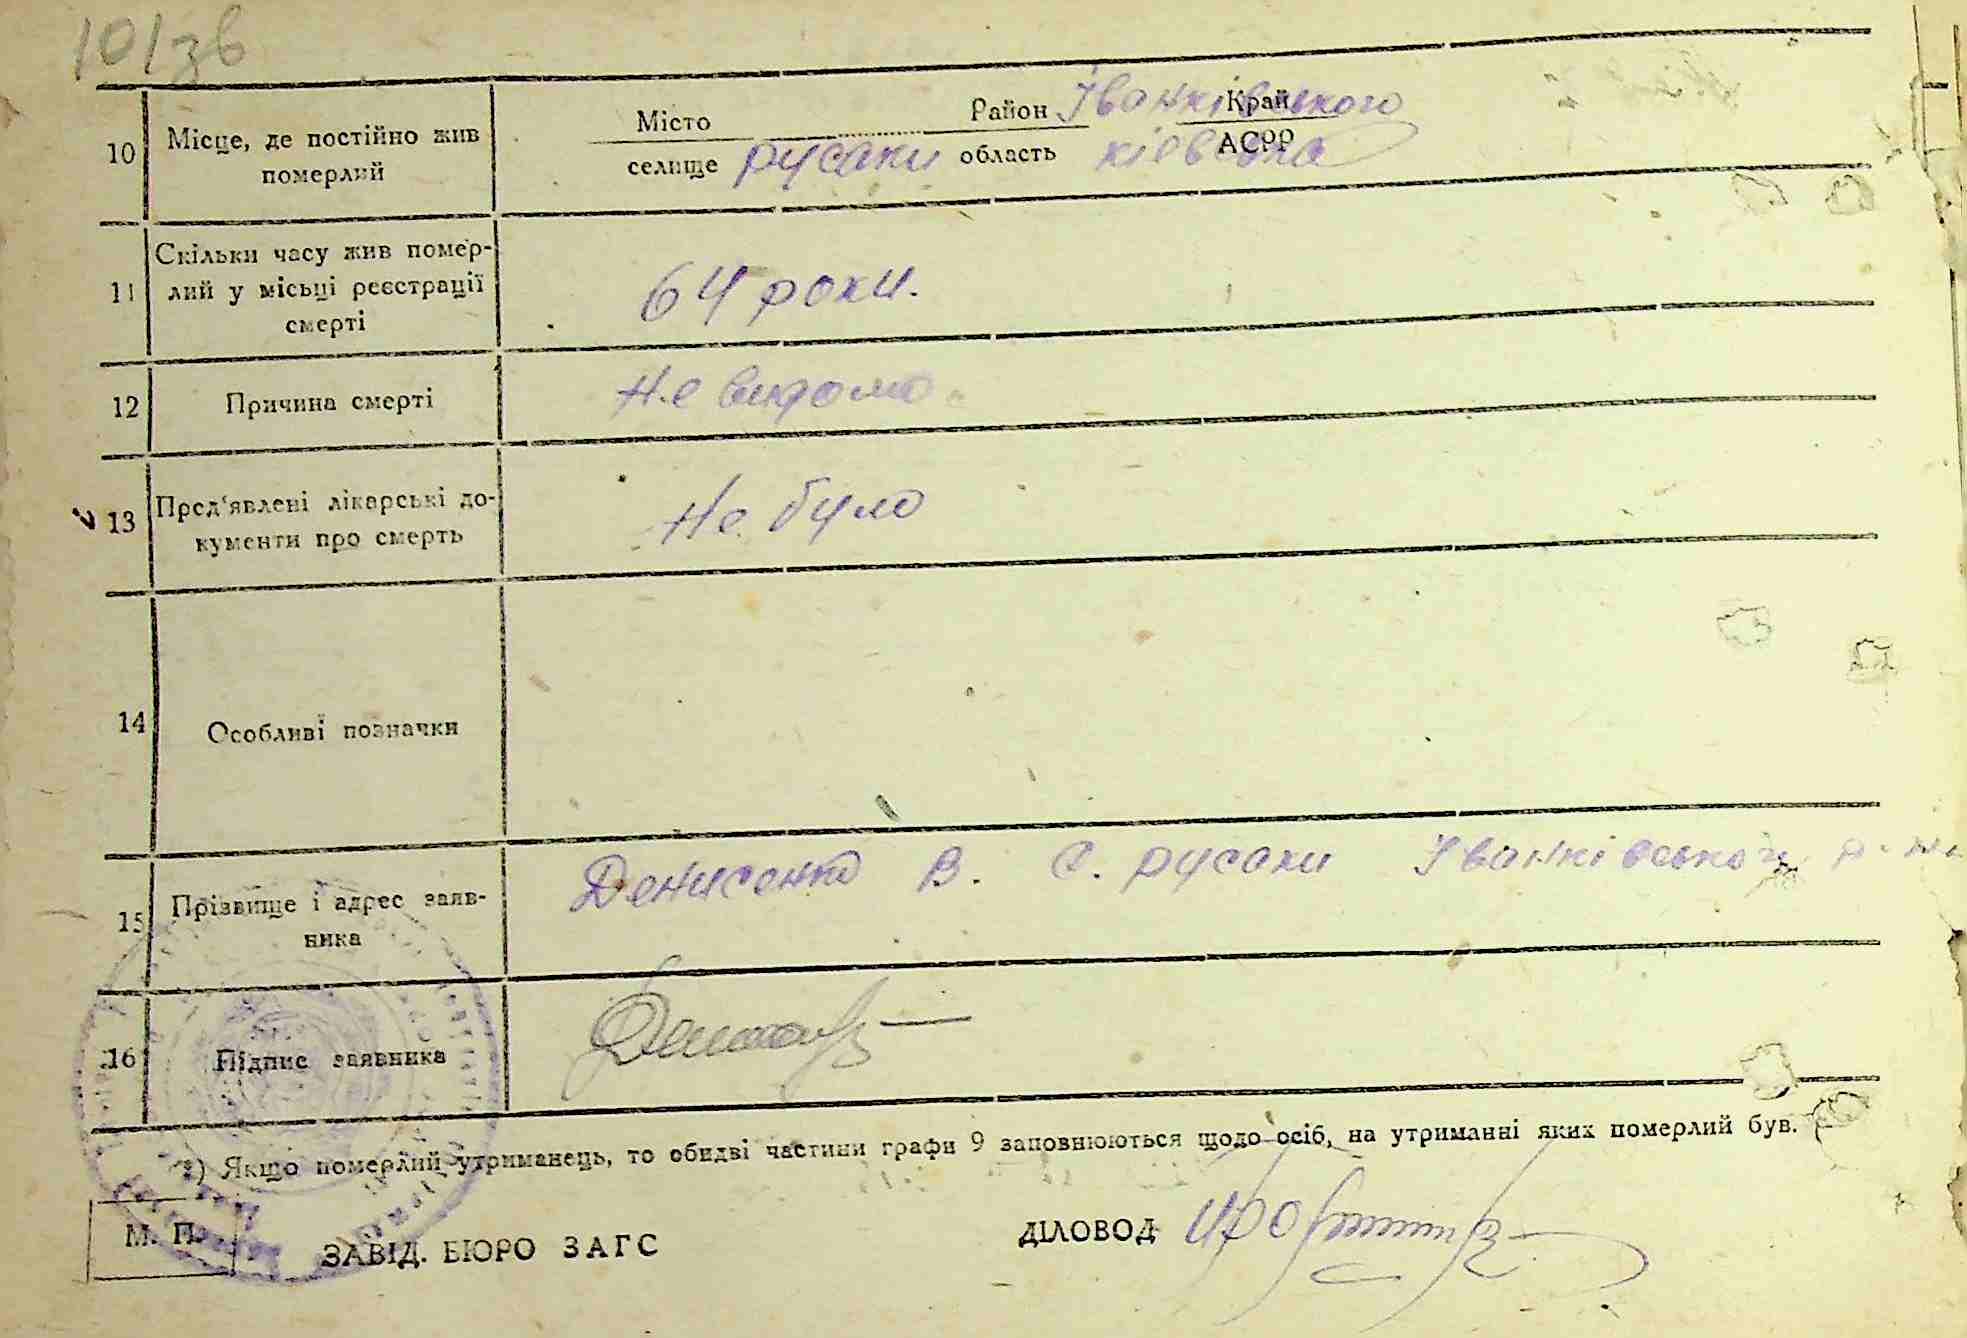 101зв
10 Місце, де постійно жив померлий
Місто Район Іванківського Край
селище русаки область кієвська АСРР
11 Скільки часу жив помер-
лий у місці реєстрації
смерті
64 роки.
12 Причина смерті Не видомо.
13 Пред'явлені лікарські до-
кументи про смерть
Не було
14 Особливі позначки
15 Прізвище і адрес заяв-
ника
Денисенко В. С. русаки Іванківського р-ну
16 Підпис заявника
*) Якщо померлий утриманець, то обидві частини графи 9 заповнюються щодо осіб, на утриманні яких померлий був.
М. П.
ЗАВІД. БЮРО ЗАГС ДІЛОВОД